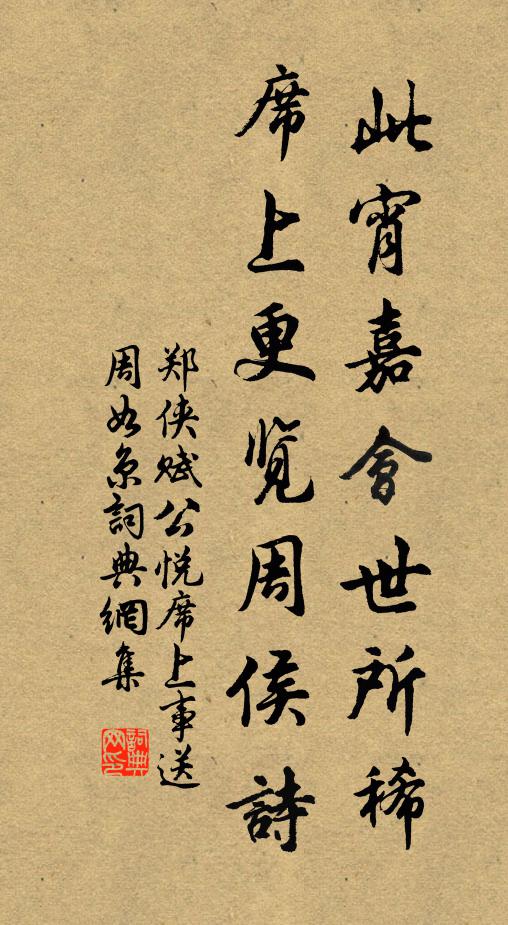 此宵嘉會世所稀
席上更览周侯詩
郑侠赋公悦席上事送
周如京詞典網集
詞典網印